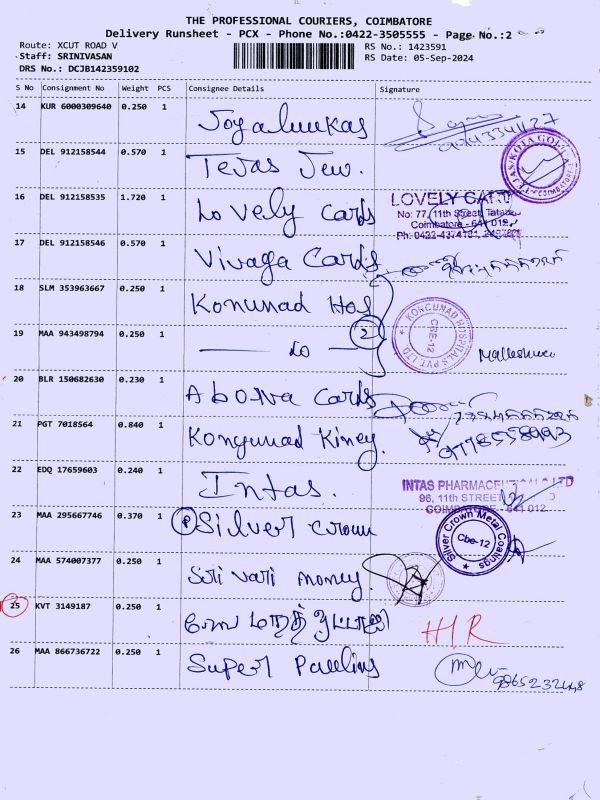 THE PROFESSIONAL COURIERS, COIMBATORE
Delivery Runsheet - PCX - Phone No.:0422-3505555 - Page No.:2
Route: XCUT ROAD V
RS No.: 1423591
Staff: SRINIVASAN
RS Date: 05-Sep-2024
DRS No.: DCJB142359102
S No Consignment No Weight PCS Consignee Details Signature
14 KUR 6000309640 0.250 1 Joyalukkas
15 DEL 912158544 0.570 1 Tejas Jew.
16 DEL 912158535 1.720 1 Lovely Cards
LOVELY CARD
No: 77, 11th Street, Tatabad
Coimbatore - 641 012
Ph: 0422-4374101,
17 DEL 912158546 0.570 1 Vivaga Cards
18 SLM 353963667 0.250 1 Konunad Hos
KONGUNAD HOSPITALS PVT LTD
CBE-12
19 MAA 943498794 0.250 1 — do — 2
Malleshwari
20 BLR 150682630 0.230 1 Abona Cards
21 PGT 7018564 0.840 1 Kongunad Kiney.
22 EDQ 17659603 0.240 1 Intas.
INTAS PHARMACEUTICALS LTD
96, 11th STREET
COIMBATORE - 641 012
23 MAA 295667746 0.370 1 P Silver Crown
Silver Crown Metal Coatings
Cbe-12
24 MAA 574007377 0.250 1 Siri vari money.
25 KVT 3149187 0.250 1
H/R
26 MAA 866736722 0.250 1 Super Paulins